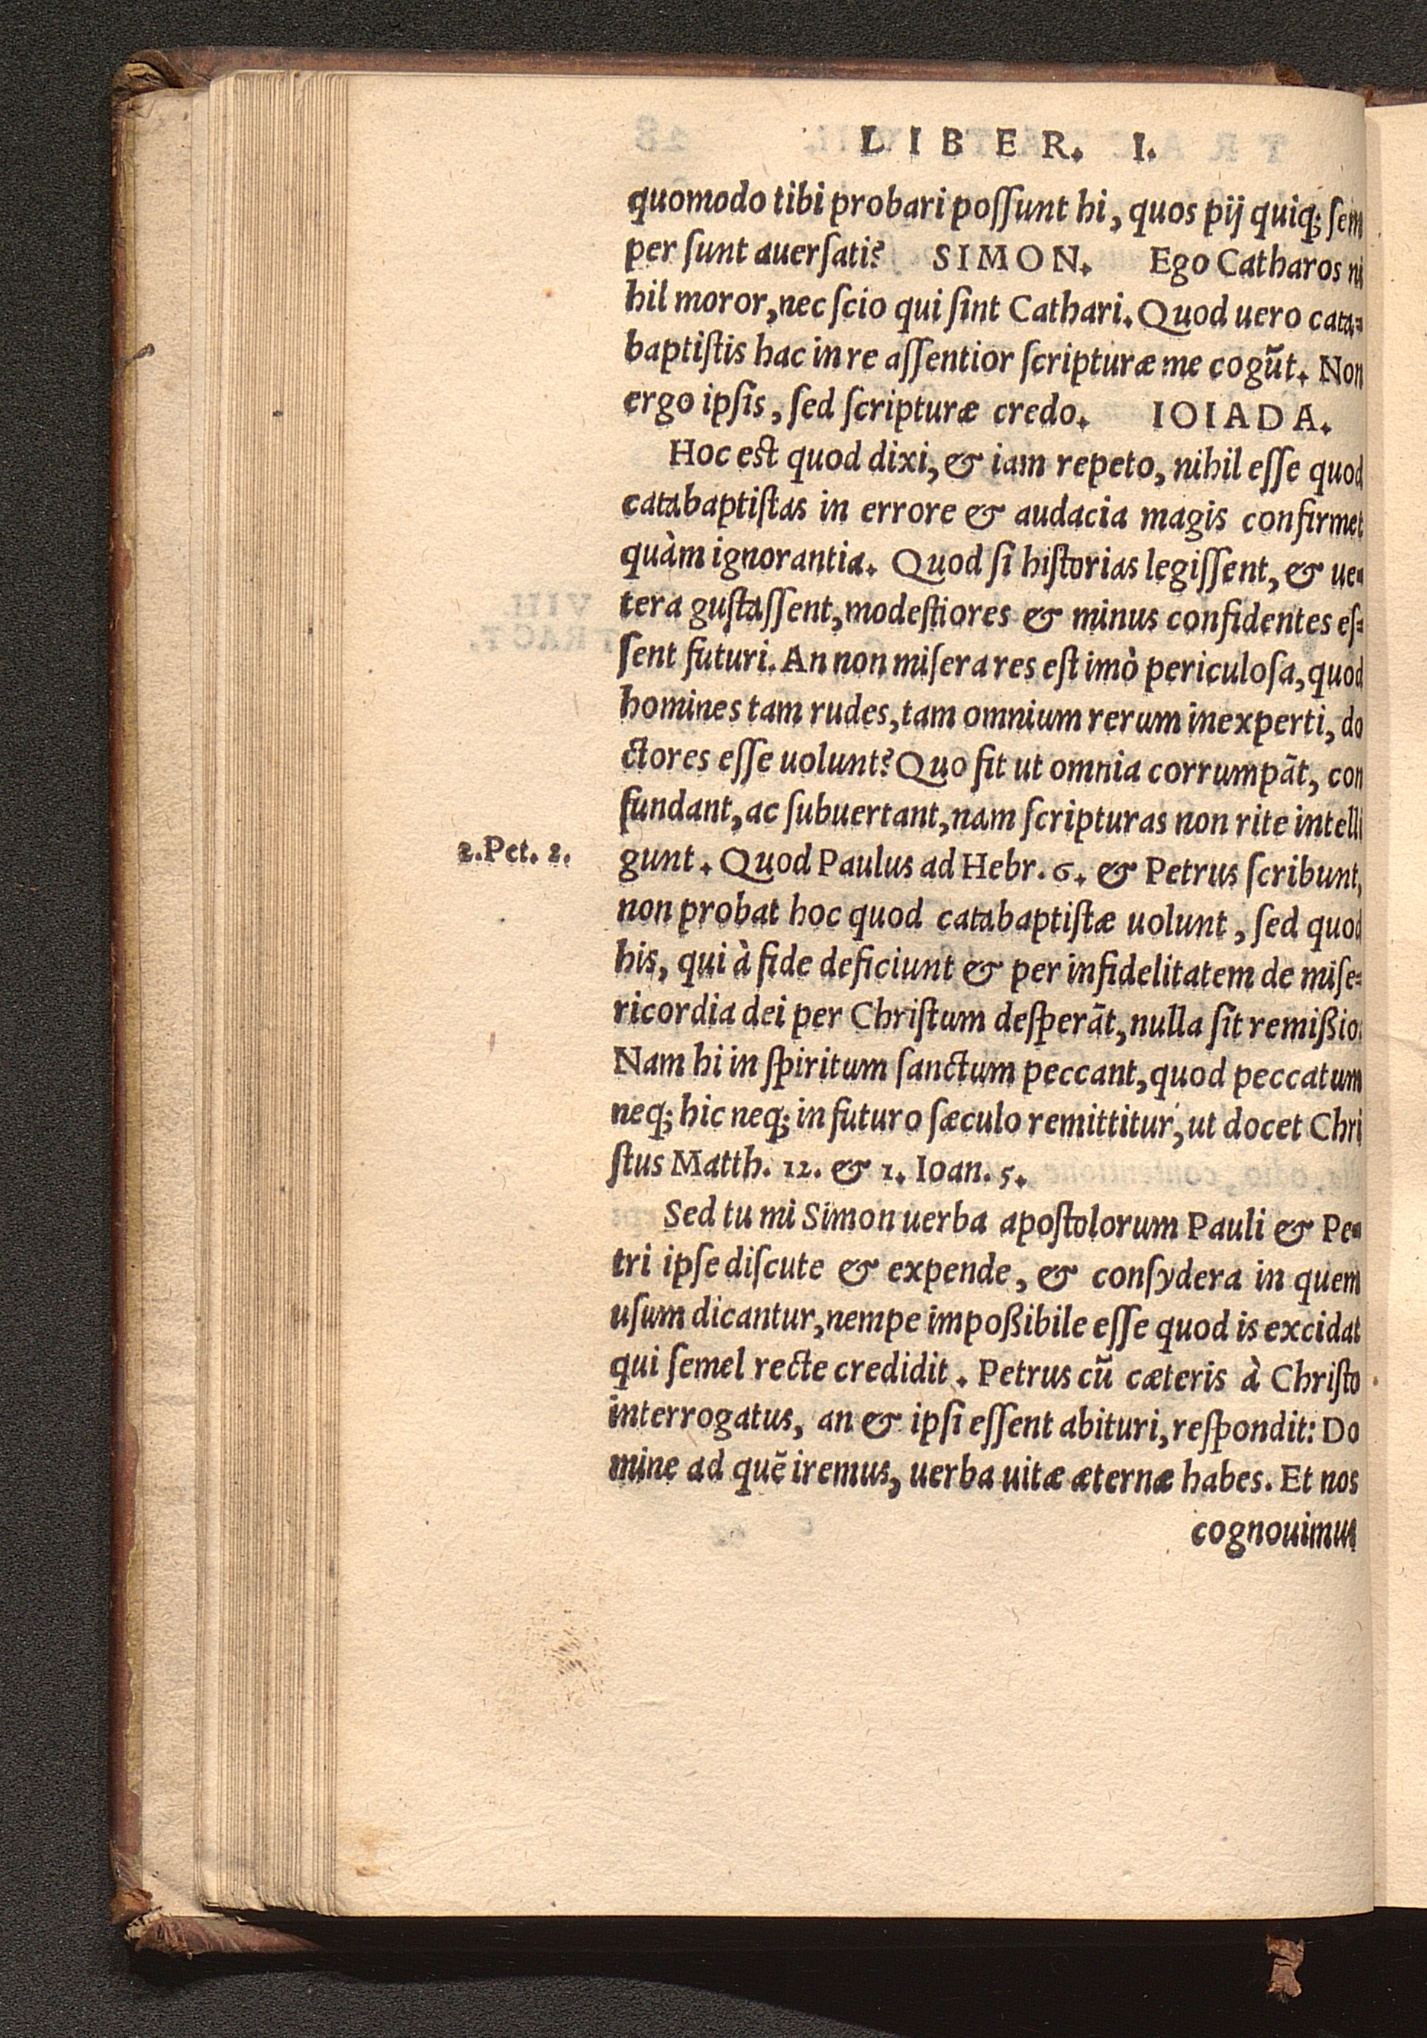 LIBER. I.
quomodo tibi probari poſſunt hi, quos pij quiq; ſem
per ſunt auerſati? SIMON. Ego Catharos ni
hil moror, nec ſcio qui ſint Cathari. Quod uero cata-
baptiſtis hac in re aſſentior ſcripturæ me cogūt. Non
ergo ipſis, ſed ſcripturæ credo. IOIADA.
Hoc eſt quod dixi, & iam repeto, nihil eſſe quod
catabaptiſtas in errore & audacia magis confirmet
quàm ignorantia. Quod ſi hiſtorias legiſſent, & ue-
tera guſtaſſent, modeſtiores & minus confidentes eſ-
ſent futuri. An non miſera res eſt imò periculoſa, quod
homines tam rudes, tam omnium rerum inexperti, do
ctores eſſe uolunt? Quo fit ut omnia corrumpāt, con
fundant, ac ſubuertant, nam ſcripturas non rite intelli
2.Pet. 2.
gunt. Quod Paulus ad Hebr. 6. & Petrus ſcribunt,
non probat hoc quod catabaptiſtæ uolunt, ſed quod
his, qui à fide deficiunt & per infidelitatem de miſe-
ricordia dei per Chriſtum deſperāt, nulla ſit remiſſio.
Nam hi in ſpiritum ſanctum peccant, quod peccatum
neq; hic neq; in futuro ſæculo remittitur, ut docet Chri
ſtus Matth. 12. & 1. Ioan. 5.
Sed tu mi Simon uerba apoſtolorum Pauli & Pe-
tri ipſe diſcute & expende, & conſydera in quem
uſum dicantur, nempe impoßibile eſſe quod is excidat
qui ſemel recte credidit. Petrus cū cæteris à Chriſto
interrogatus, an & ipſi eſſent abituri, reſpondit: Do
mine ad quē iremus, uerba uitæ æternæ habes. Et nos
cognouimus